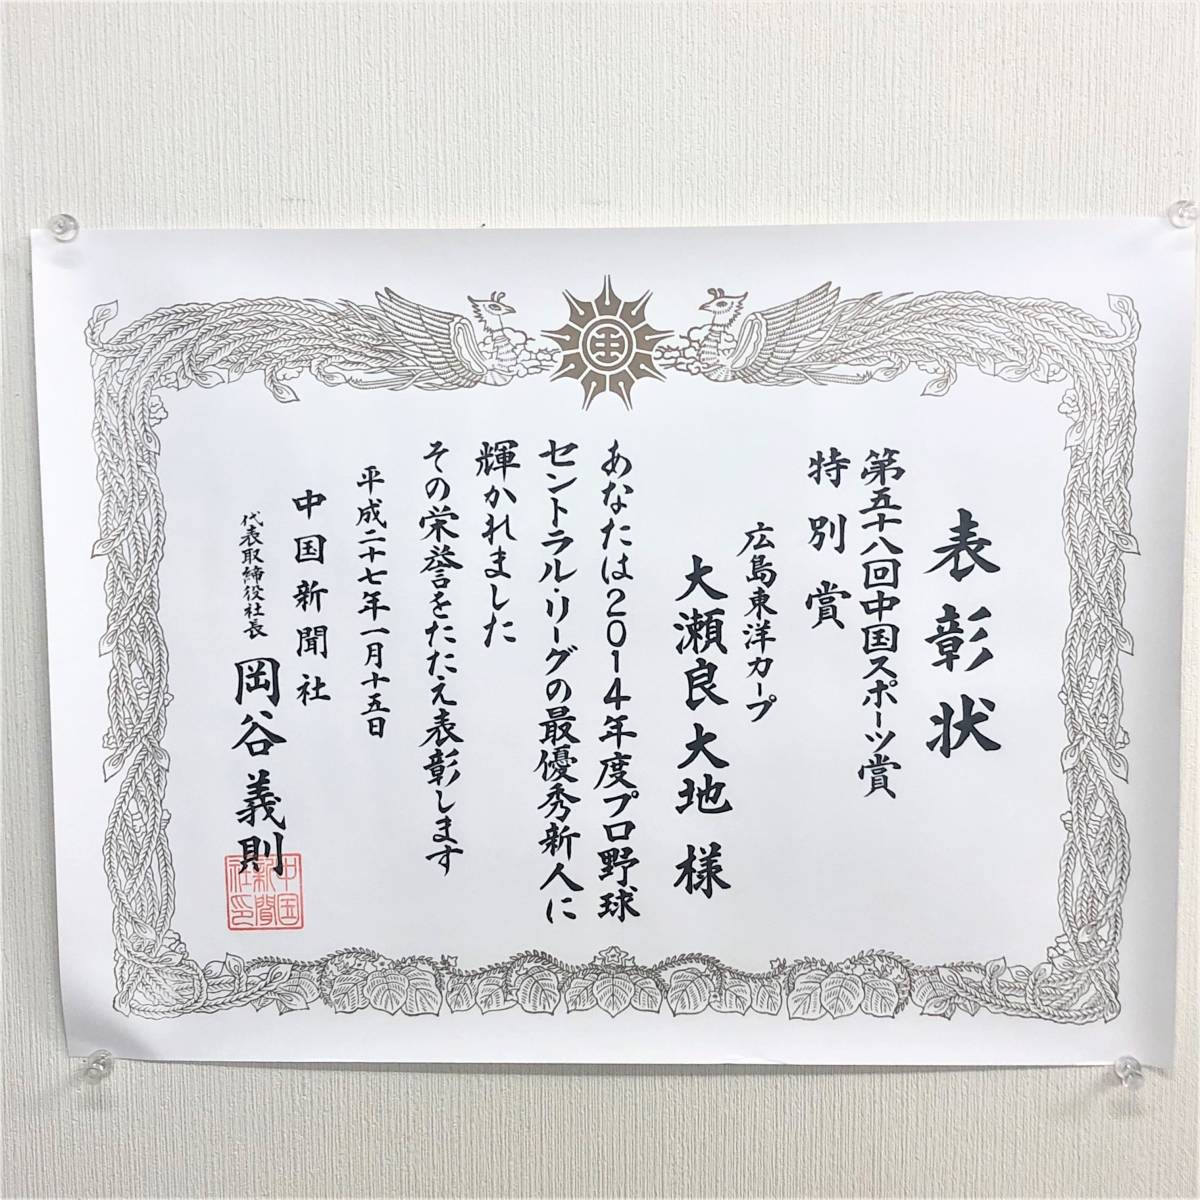 表彰状
第五十八回中国スポーツ賞
特別賞
広島東洋カープ
大瀬良大地様
あなたは2014年度プロ野球
セントラル・リーグの最優秀新人に
輝かれました
その栄誉をたたえ表彰します
平成二十七年一月十五日
中国新聞社
代表取締役社長 岡谷義則
中国
新聞
社印